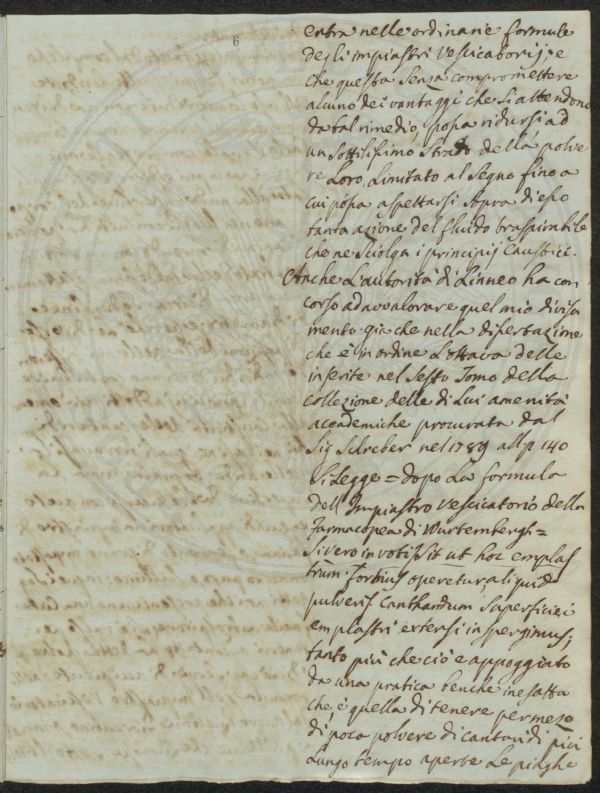 6
entra nelle ordinarie formule
degli impiastri vescicatorij, e
che questa senza compromettere
alcuno dei vantaggi che si attendono
da tal rimedio, possa ridursi ad
un sottilissimo strato della polve
re loro limitato al segno fino a
cui possa aspettarsi sopra di esso
tanta azione del fluido traspirabile
che ne sciolga i principij caustici.
Anche l'autorità di Linneo ha con
corso ad avvalorare quel mio divisa
mento già che nella dissertazione
che è in ordine l'ottava delle
inserite nel sesto Tomo della
collezione delle di lui amenità
accademiche procurata dal
Sig Schreber nel 1789 all p 140
si legge = dopo la formula
dell'Impiastro vescicatorio della
Farmacopea di Wurtembergh =
Si vero in votis sit ut hoc emplas
trum fortius operetur, aliquid
pulveris Cantharidum superficiei
emplastri extensi inspergimus;
tanto più che ciò è appoggiato
da una pratica benche inesatta
che è quella di tenere per mezo
di poca polvere di cantaridi più
lungo tempo aperte le piaghe